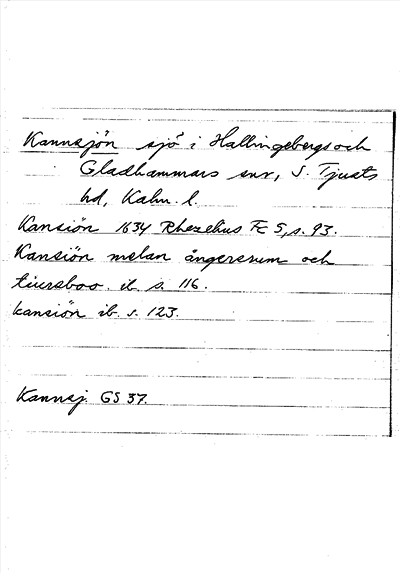 Kannsjön sjö i Hallingebergs och
Gladhammars snr, S. Tjusts
hd, Kalm. l.
Kansiön 1634 Rhezelius Fc 5, s. 93.
Kansiön melan ångersrum och
tiursboo. ib. s. 116.
kansiön ib. s. 123.
Kannsj. GS 37.